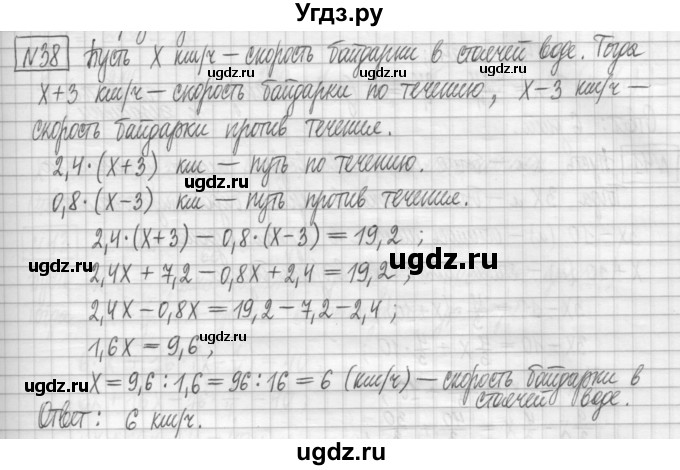 Угдз.ру
№38 Пусть х км/ч – скорость байдарки в стоячей воде. Тогда
ugdz.ru ugdz.ru
х+3 км/ч – скорость байдарки по течению, х–3 км/ч –
скорость байдарки против течения.
2,4·(х+3) км – путь по течению.
ugdz.ru
0,8·(х–3) км – путь против течения.
2,4·(х+3) – 0,8·(х–3) = 19,2 ;
ugdz.ru ugdz.ru
2,4х + 7,2 – 0,8х + 2,4 = 19,2 ;
2,4х – 0,8х = 19,2 – 7,2 – 2,4 ;
ugdz.ru
1,6х = 9,6 ;
х = 9,6 : 1,6 = 96 : 16 = 6 (км/ч) – скорость байдарки в
стоячей воде.
ugdz.ru ugdz.ru
Ответ: 6 км/ч.
ugdz.ru